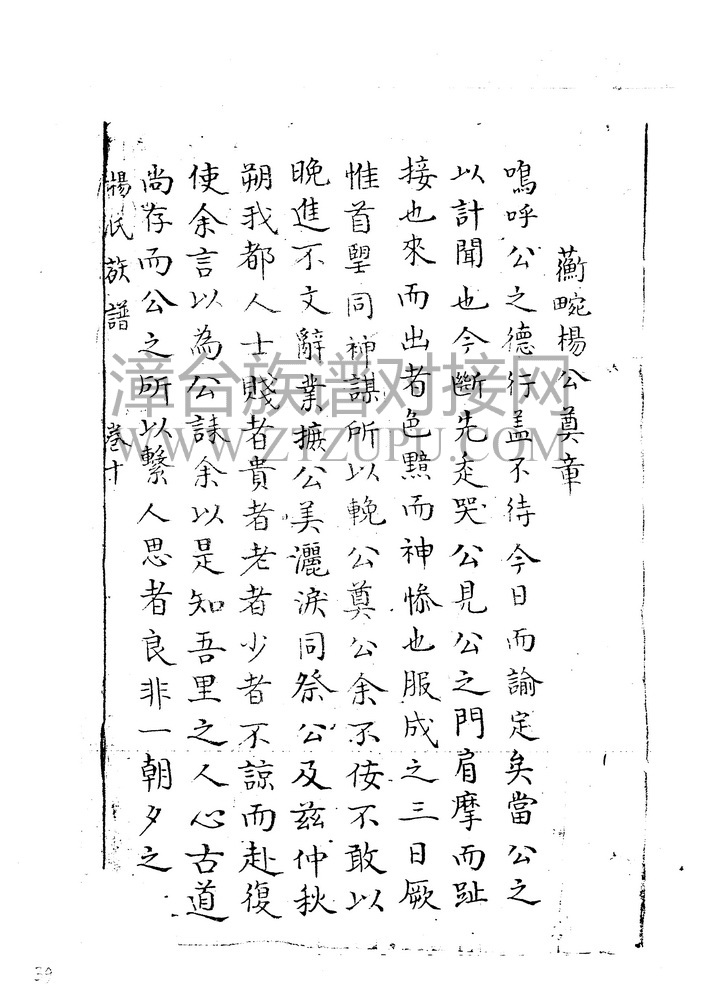 蘅畹楊公奠章
嗚呼公之德行盖不待今日而諭定矣當公之
以訃聞也今斷先走哭公見公之門肩摩而趾
接也來而出者色黯而神惨也服成之三日厥
惟首壄同神謀所以輓公奠公余不佞不敢以
晚進不文辭業摭公美灑淚同祭公及兹仲秋
朔我都人士賤者貴者老者少者不諒而赴復
使余言以為公誄余以是知吾里之人心古道
尚存而公之所以繫人思者良非一朝夕之
楊氏族譜 卷十
漳台族谱对接网
WWW.ZTZUPU.COM
39